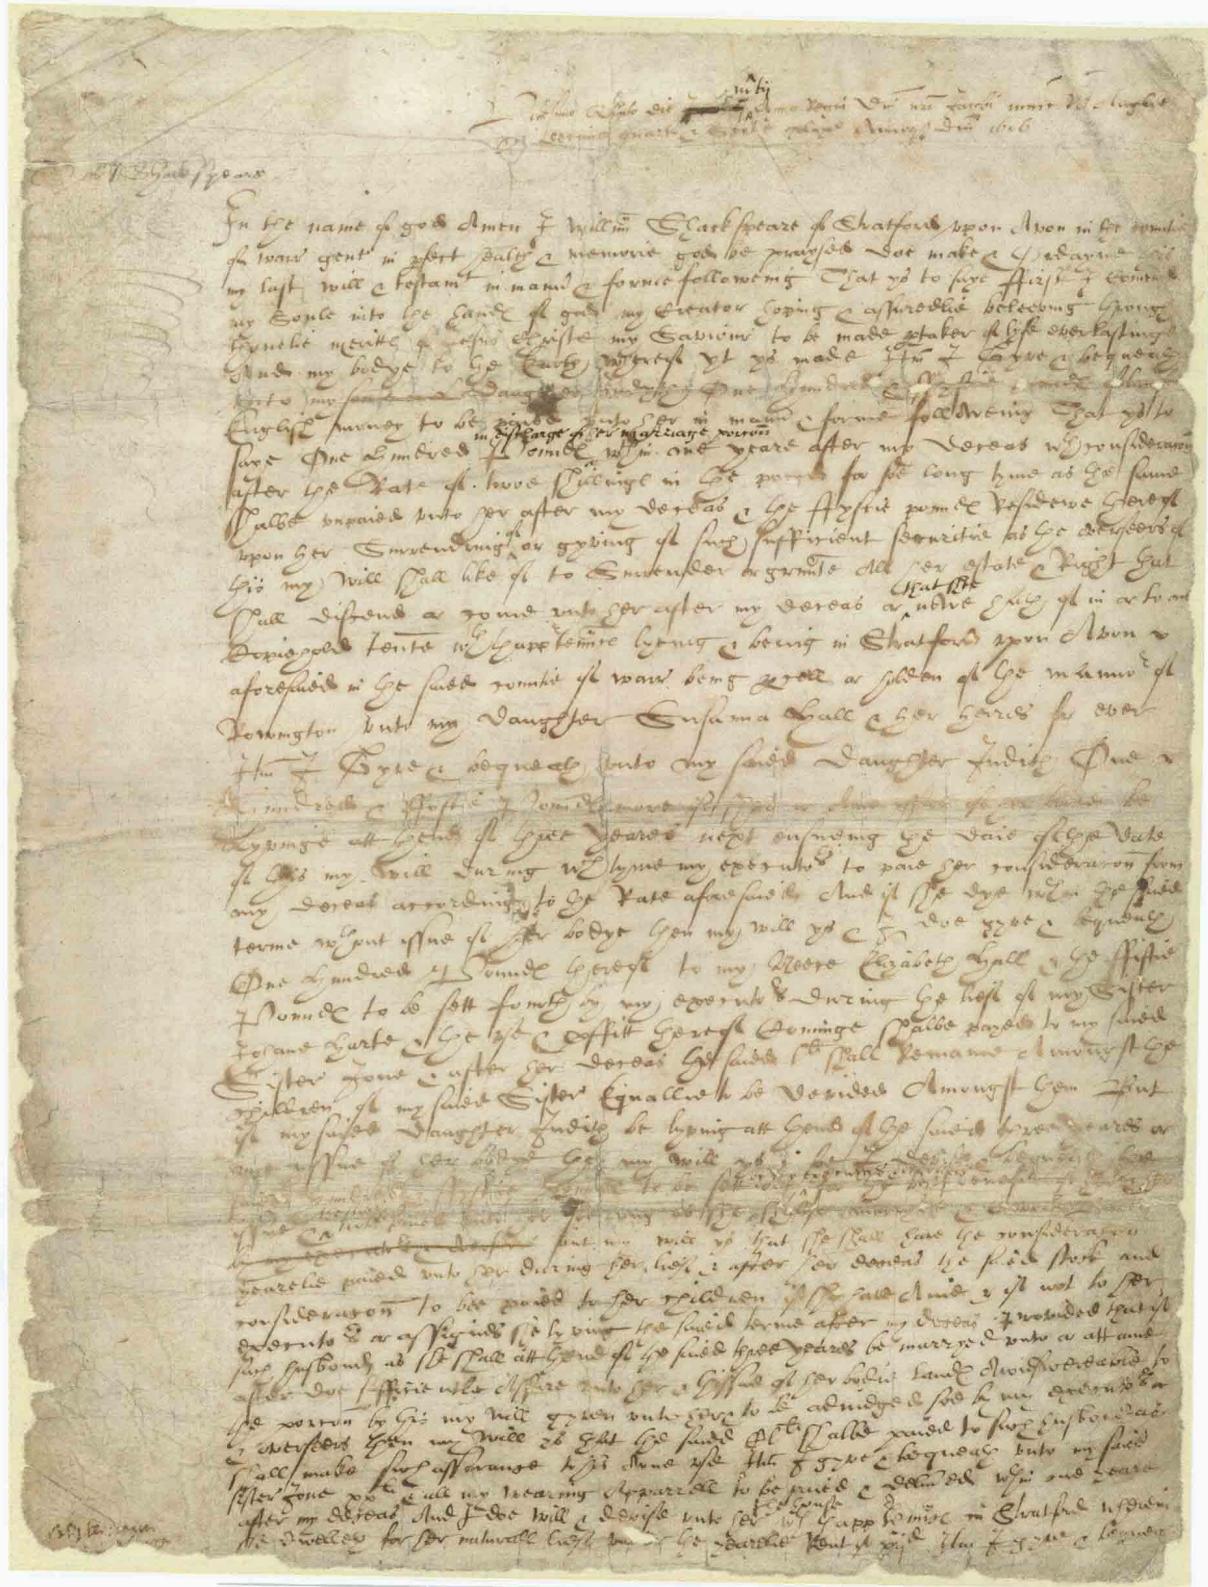 Martij
Vicesimo Quinto die Anno Regni Dni nri Jacobi nunc R Anglie
decimo quarto & Scotie xlixo Annoqz Dni 1616
Shackspeare
In the name of god Amen I Willim Shackspeare of Stratford vpon Avon in the countie
of warr gent in pfect health & memorie god be praysed doe make & Ordayne this
my last will & testamt in mannr & forme followeing That ys to saye ffirst I Comend
my Soule into the handℯ of god my Creator hoping & assuredlie beleeving through
thonelie merittℯ of Jesus Christe my Saviour to be made ptaker of lyfe everlastinge
And my bodye to the Earth whereof yt ys made Itm I Gyve & bequeath
vnto my Daughter Judyth One Hundred & ffyftie
English money to be paied vnto her in mannr & forme followeing That ys to
in discharge of her marriage porcion
saye One Hundred Poundℯ wthin one yeare after my Deceas wth consideracon
after the Rate of twoe shillingℯ in the pound for soe long tyme as the same
shalbe vnpaied vnto her after my deceas & the ffyftie poundℯ Residewe thereof
vpon her Surrendring of or gyving of such sufficient securitie as the overseers of
this my Will shall like of to Surrender or graunte All her estate & Right that
that shee
shall discend or come vnto her after my deceas or nowe hath of in or to one
Copiehold tente wth thapptennces lyeing & being in Stratford vpon Avon
aforesaied in the saied countie of warr being pcell or holden of the mannor of
Rowington vnto my daughter Susanna Hall & her heires for ever
Itm I Gyve & bequeath vnto my saied Daughter Judith One
Hundred & ffyftie Poundℯ more if shee or Anie issue of her bodie be
Lyvinge att thend of three Yeares next ensueing the daie of the date
of this my Will during wch tyme my executors to paie her consideracon from
my deceas according to the Rate aforesaied And if she dye wthin the saied
terme wthout issue of her bodye then my will ys & I doe gyve & bequeath
One Hundred Poundℯ thereof to my Neece Elizabeth Hall & the ffiftie
Poundℯ to be sett fourth by my executors during the lief of my Sister
Johane Harte & the vse & pffitt thereof Cominge shalbe payed to my saied
Sister Jone & after her deceas the saied l li shall Remaine Amongst the
children of my saied Sister Equallie to be devided Amongst them But
if my saied daughter Judith be lyving att thend of the saied three yeares or
anie yssue of her bodye then my will ys & soe I devise & bequeath the
saied Hundred & ffyftie Poundℯ to be sett out for the best benefit of her &
by my executors & overseers
issue & the stock not to be paied vnto her soe long as she shalbe marryed & covert baron
by my executors & overseers but my will ys that she shall have the consideracon
yearelie paied vnto her during her lief & after her deceas the saied stock and
consideracon to bee paied to her children if she have Anie & if not to her
executors or assignes she lyving the saied terme after my deceas Provided that if
such husbond as she shall att thend of the saied three yeares be marryed vnto or att anie
after doe sufficientlie Assure vnto her & thissue of her bodie landℯ Awnswereable to
the porcion by this my will gyven vnto her & to be adiudged soe by my executors
& overseers then my will ys that the saied Cl li shalbe paied to such husbond as
shall make such assurance to his owne vse Itm I gyve & bequeath vnto my saied
sister Jone xx li & all my wearing Apparrell to be paied & deliuered wthin one yeare
the house
after my deceas And I doe will & devise vnto her wth thapptennces in Stratford wherein
she dwelleth for her naturall lief vnder the yearelie Rent of xij d Itm I gyve & bequeath